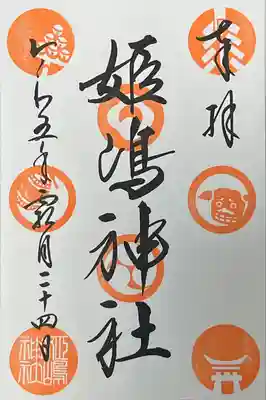 奉拝
姫嶋神社
令和五年霜月二十四日
姫嶋
神社